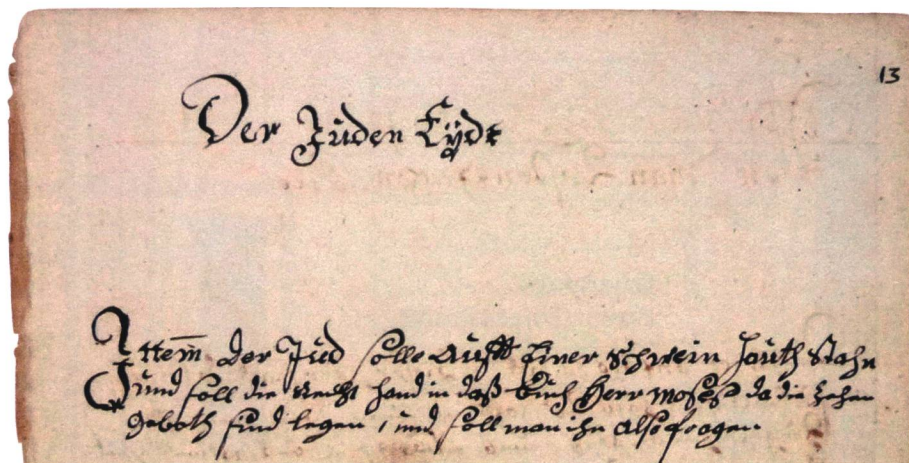 13
Der Jüden Eÿdt
Ittem̄ der Jud solle auff Einer Schwein Hauth Stahn
und soll die Recht hand in daß Buch Herr Moseße da die zehen
geboth sind legen, und soll man ihn also fragen